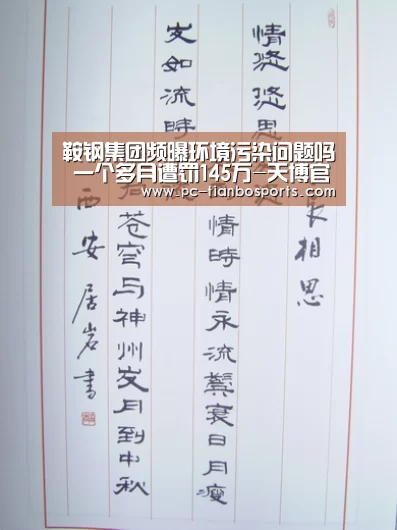 鞍钢集团频曝环境污染问题吗
一个多月遭罚145万–天博官
www.pc-tianbosports.com
長相思
情悠悠思
情時情永流鬢衰日月瘦
岁如流時
苍穹与神州岁月到中秋
西安居岩書